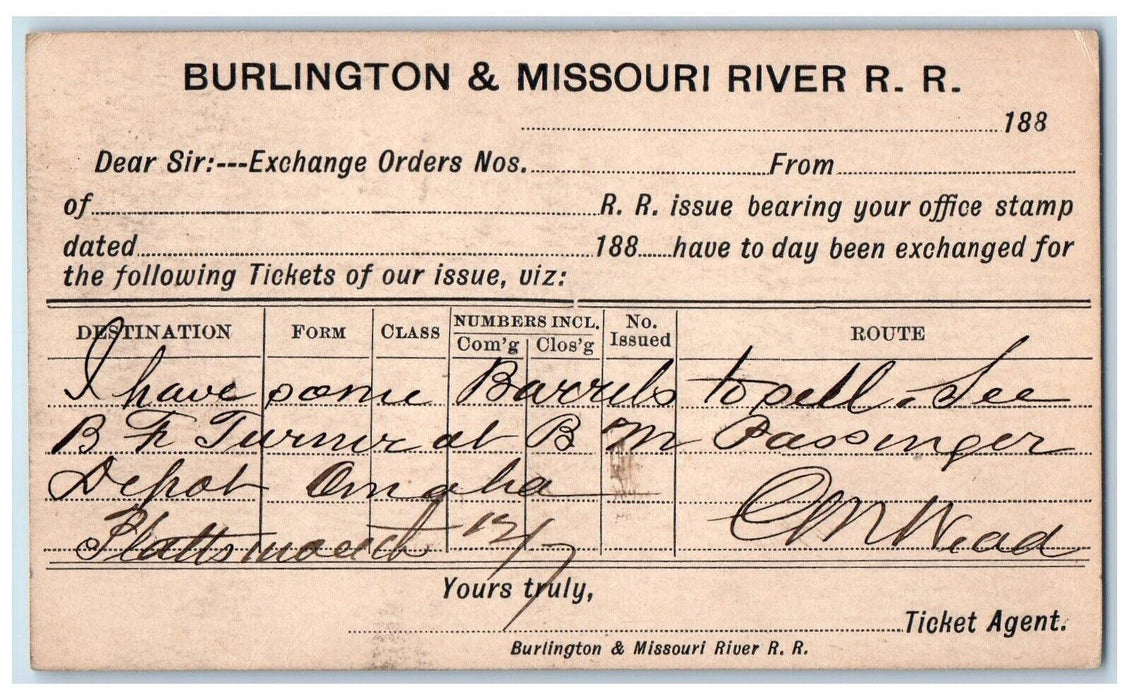 BURLINGTON & MISSOURI RIVER R. R.
188
Dear Sir:---Exchange Orders Nos. From
of R. R. issue bearing your office stamp
dated 188 have to day been exchanged for
the following Tickets of our issue, viz:
DESTINATION FORM CLASS NUMBERS INCL. Com'g Clos'g No. Issued ROUTE
I have some Barrels to sell. See
B F Turner at B M Passinger
Depot Omaha
Plattsmouth 12/7 CM Wead
Yours truly,
Ticket Agent.
Burlington & Missouri River R. R.